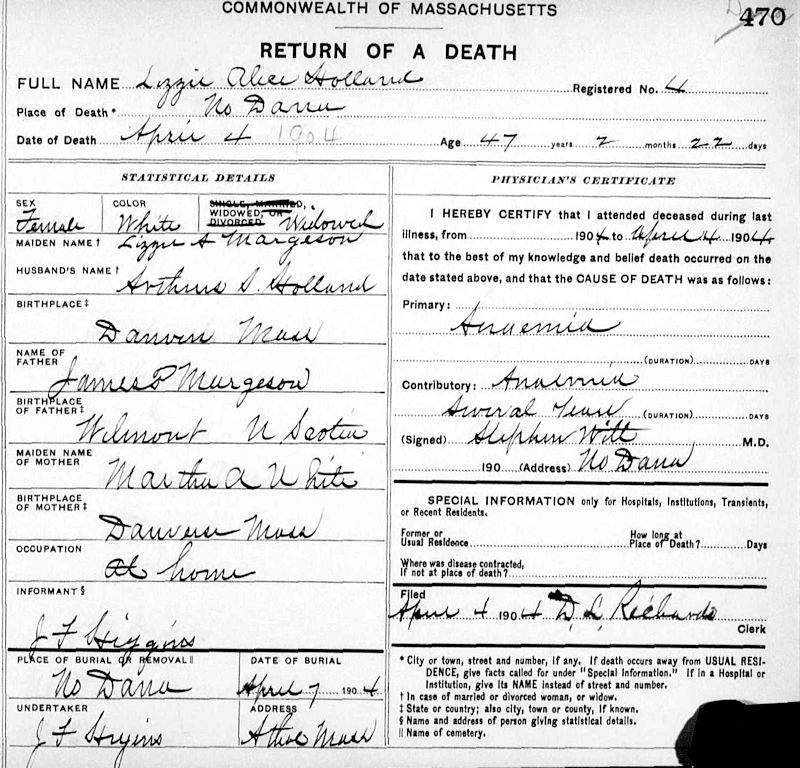 COMMONWEALTH OF MASSACHUSETTS
470
RETURN OF A DEATH
FULL NAME Lizzie Alice Holland Registered No. 4
Place of Death* No Dana
Date of Death April 4 1904 Age 47 years 2 months 22 days
STATISTICAL DETAILS
SEX Female
COLOR White
SINGLE, MARRIED, WIDOWED, OR DIVORCED Widowed
MAIDEN NAME † Lizzie A Margeson
HUSBAND'S NAME † Arthur S. Holland
BIRTHPLACE ‡
Danvers Mass
NAME OF FATHER
James P Margeson
BIRTHPLACE OF FATHER ‡
Wilmont N Scotia
MAIDEN NAME OF MOTHER
Martha A White
BIRTHPLACE OF MOTHER ‡
Danvers Mass
OCCUPATION
At home
INFORMANT §
J F Higgins
PLACE OF BURIAL OR REMOVAL ||
No Dana
DATE OF BURIAL
April 7 1904
UNDERTAKER
J F Higgins
ADDRESS
Athol Mass
PHYSICIAN'S CERTIFICATE
I HEREBY CERTIFY that I attended deceased during last
illness, from 1904 to April 4 1904
that to the best of my knowledge and belief death occurred on the
date stated above, and that the CAUSE OF DEATH was as follows:
Primary:
Anaemia
(DURATION) DAYS
Contributory: Anaemia
Several Years (DURATION) DAYS
(Signed) Stephen Witt M.D.
190 (Address) No Dana
SPECIAL INFORMATION only for Hospitals, Institutions, Transients,
or Recent Residents.
Former or Usual Residence
How long at Place of Death? Days
Where was disease contracted,
If not at place of death?
Filed
April 4 1904 D. L. Richards
Clerk
* City or town, street and number, if any. If death occurs away from USUAL RESI-
DENCE, give facts called for under "Special Information." If in a Hospital or
Institution, give its NAME instead of street and number.
† In case of married or divorced woman, or widow.
‡ State or country; also city, town or county, if known.
§ Name and address of person giving statistical details.
|| Name of cemetery.